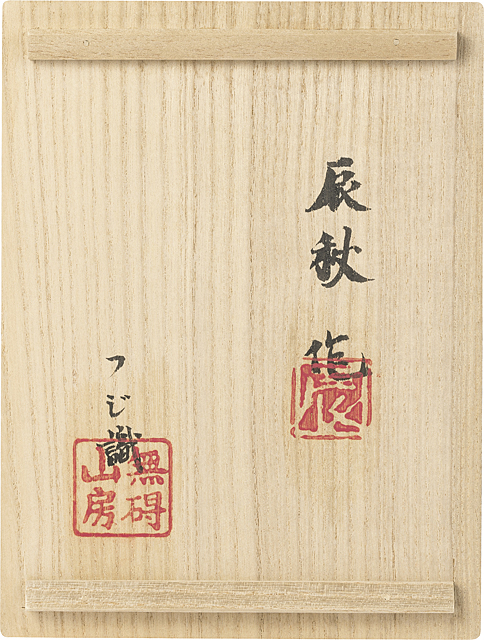 辰秋 作
フジ識
無碍
山房